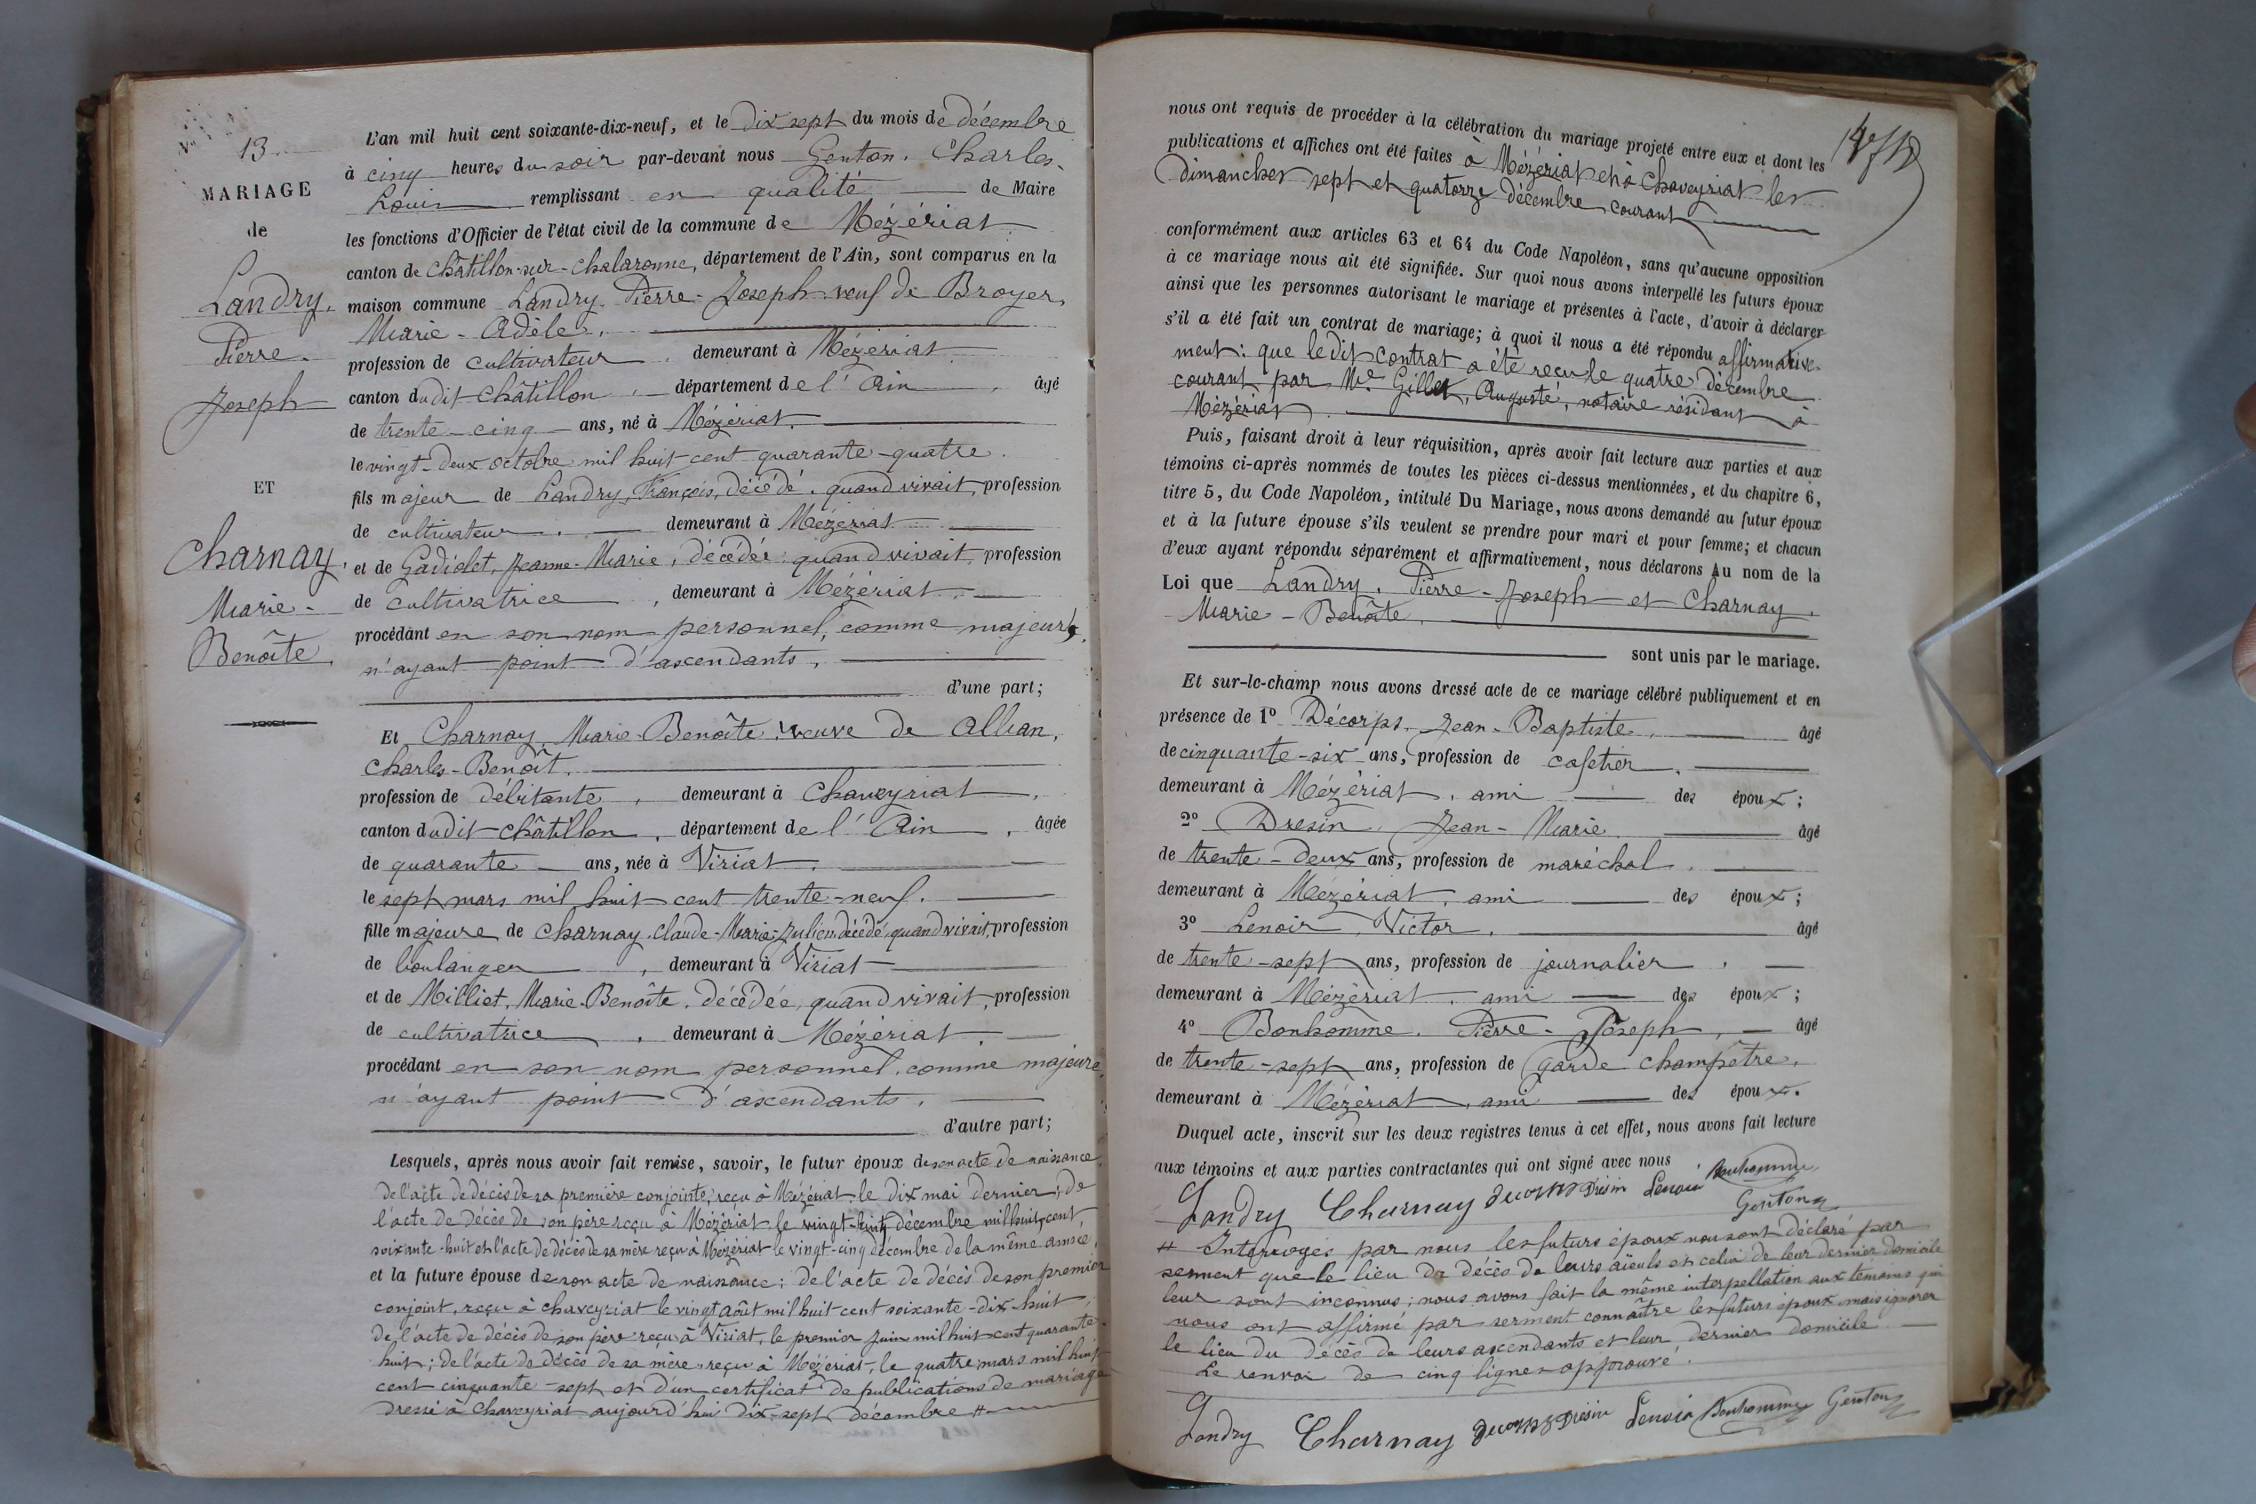 N° 13
MARIAGE
de
Landry.
Pierre-
Joseph
ET
Charnay.
Marie-
Benoîte
L'an mil huit cent soixante-dix-neuf, et le dix sept du mois de décembre
à cinq heures du soir par-devant nous Genton, Charles-
Louis remplissant en qualité de Maire
les fonctions d'Officier de l'état civil de la commune de Mézériat
canton de Châtillon-sur-Chalaronne, département de l'Ain, sont comparus en la
maison commune Landry Pierre-Joseph veuf de Broyer,
Marie-Adèle.
profession de cultivateur demeurant à Mézériat
canton dudit Châtillon département de l'Ain, âgé
de trente-cinq ans, né à Mézériat.
le vingt-deux octobre mil huit cent quarante-quatre.
fils majeur de Landry, François, décédé, quand vivait, profession
de cultivateur demeurant à Mézériat
et de Gadiolet, Jeanne-Marie, décédée: quand vivait, profession
de cultivatrice, demeurant à Mézériat.
procédant en son nom personnel, comme majeur,
n'ayant point d'ascendants.
d'une part;
Et Charnay, Marie-Benoîte, veuve de Alban,
Charles-Benoît.
profession de débitante, demeurant à Chaveyriat,
canton dudit Châtillon, département de l'Ain, âgée
de quarante ans, née à Viriat.
le sept mars mil huit cent trente-neuf.
fille majeure de Charnay, Claude-Marie-Julien décédé, quand vivait, profession
de boulanger, demeurant à Viriat
et de Milliet, Marie-Benoîte, décédée, quand vivait, profession
de cultivatrice, demeurant à Mézériat.
procédant en son nom personnel, comme majeure,
n'ayant point d'ascendants.
d'autre part;
Lesquels, après nous avoir fait remise, savoir, le futur époux de son acte de naissance
de l'acte de décès de sa première conjointe, reçu à Mézériat le dix mai dernier; de
l'acte de décès de son père reçu à Mézériat le vingt- décembre mil huit cent
soixante-huit et l'acte de décès de sa mère reçu à Mézériat le vingt-cinq décembre de la même année,
et la future épouse de son acte de naissance; de l'acte de décès de son premier
conjoint, reçu à Chaveyriat le vingt août mil huit cent soixante-dix-huit
de l'acte de décès de son père reçu à Viriat, le premier juin mil huit cent quarante-
huit; de l'acte de décès de sa mère reçu à Mézériat, le quatre mars mil huit
cent cinquante-sept et d'un certificat de publications de mariage
dressé à Chaveyriat aujourd'hui dix-sept décembre #
nous ont requis de procéder à la célébration du mariage projeté entre eux et dont les
publications et affiches ont été faites à Mézériat et à Chaveyriat les
dimanches sept et quatorze décembre courant
conformément aux articles 63 et 64 du Code Napoléon, sans qu'aucune opposition
à ce mariage nous ait été signifiée. Sur quoi nous avons interpellé les futurs époux
ainsi que les personnes autorisant le mariage et présentes à l'acte, d'avoir à déclarer
s'il a été fait un contrat de mariage; à quoi il nous a été répondu affirmative-
ment: que le dit contrat a été reçu le quatre décembre
courant par Me Gillet, Auguste, notaire résidant à
Mézériat.
Puis, faisant droit à leur réquisition, après avoir fait lecture aux parties et aux
témoins ci-après nommés de toutes les pièces ci-dessus mentionnées, et du chapitre 6,
titre 5, du Code Napoléon, intitulé Du Mariage, nous avons demandé au futur époux
et à la future épouse s'ils veulent se prendre pour mari et pour femme; et chacun
d'eux ayant répondu séparément et affirmativement, nous déclarons Au nom de la
Loi que Landry, Pierre-Joseph et Charnay,
Marie-Benoîte,
sont unis par le mariage.
Et sur-le-champ nous avons dressé acte de ce mariage célébré publiquement et en
présence de 1° Décorps, Jean-Baptiste, âgé
de cinquante-six ans, profession de cafetier,
demeurant à Mézériat, ami des époux;
2° Dresin Jean-Marie âgé
de trente-deux ans, profession de maréchal
demeurant à Mézériat, ami des époux;
3° Lenoir, Victor, âgé
de trente-sept ans, profession de journalier
demeurant à Mézériat, ami des époux;
4° Bonhomme, Pierre-Joseph, âgé
de trente-sept ans, profession de garde champêtre,
demeurant à Mézériat, ami des époux.
Duquel acte, inscrit sur les deux registres tenus à cet effet, nous avons fait lecture
aux témoins et aux parties contractantes qui ont signé avec nous. Bonhomme
Landry Charnay Decorps Dresin Lenoir Genton
# Interrogés par nous les futurs époux nous ont déclaré par
serment que le lieu du décès de leurs aïeuls et celui de leur dernier domicile
leur sont inconnus; nous avons fait la même interpellation aux témoins qui
nous ont affirmé par serment connaître les futurs époux mais ignorer
le lieu du décès de leurs ascendants et leur dernier domicile
Le renvoi de cinq lignes approuvé.
Landry Charnay Decorps Dresin Lenoir Bonhomme Genton